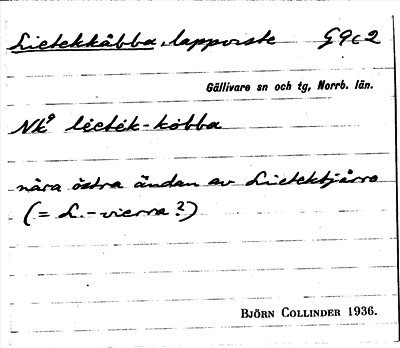 Lietekkåbba, lappviste G9c2
Gällivare sn och tg, Norrb. län.
Nk⁹ liɛtɛk-kåbba
nära östra ändan av Lietektjårro
(= L.-vierra?)
BJÖRN COLLINDER 1936.